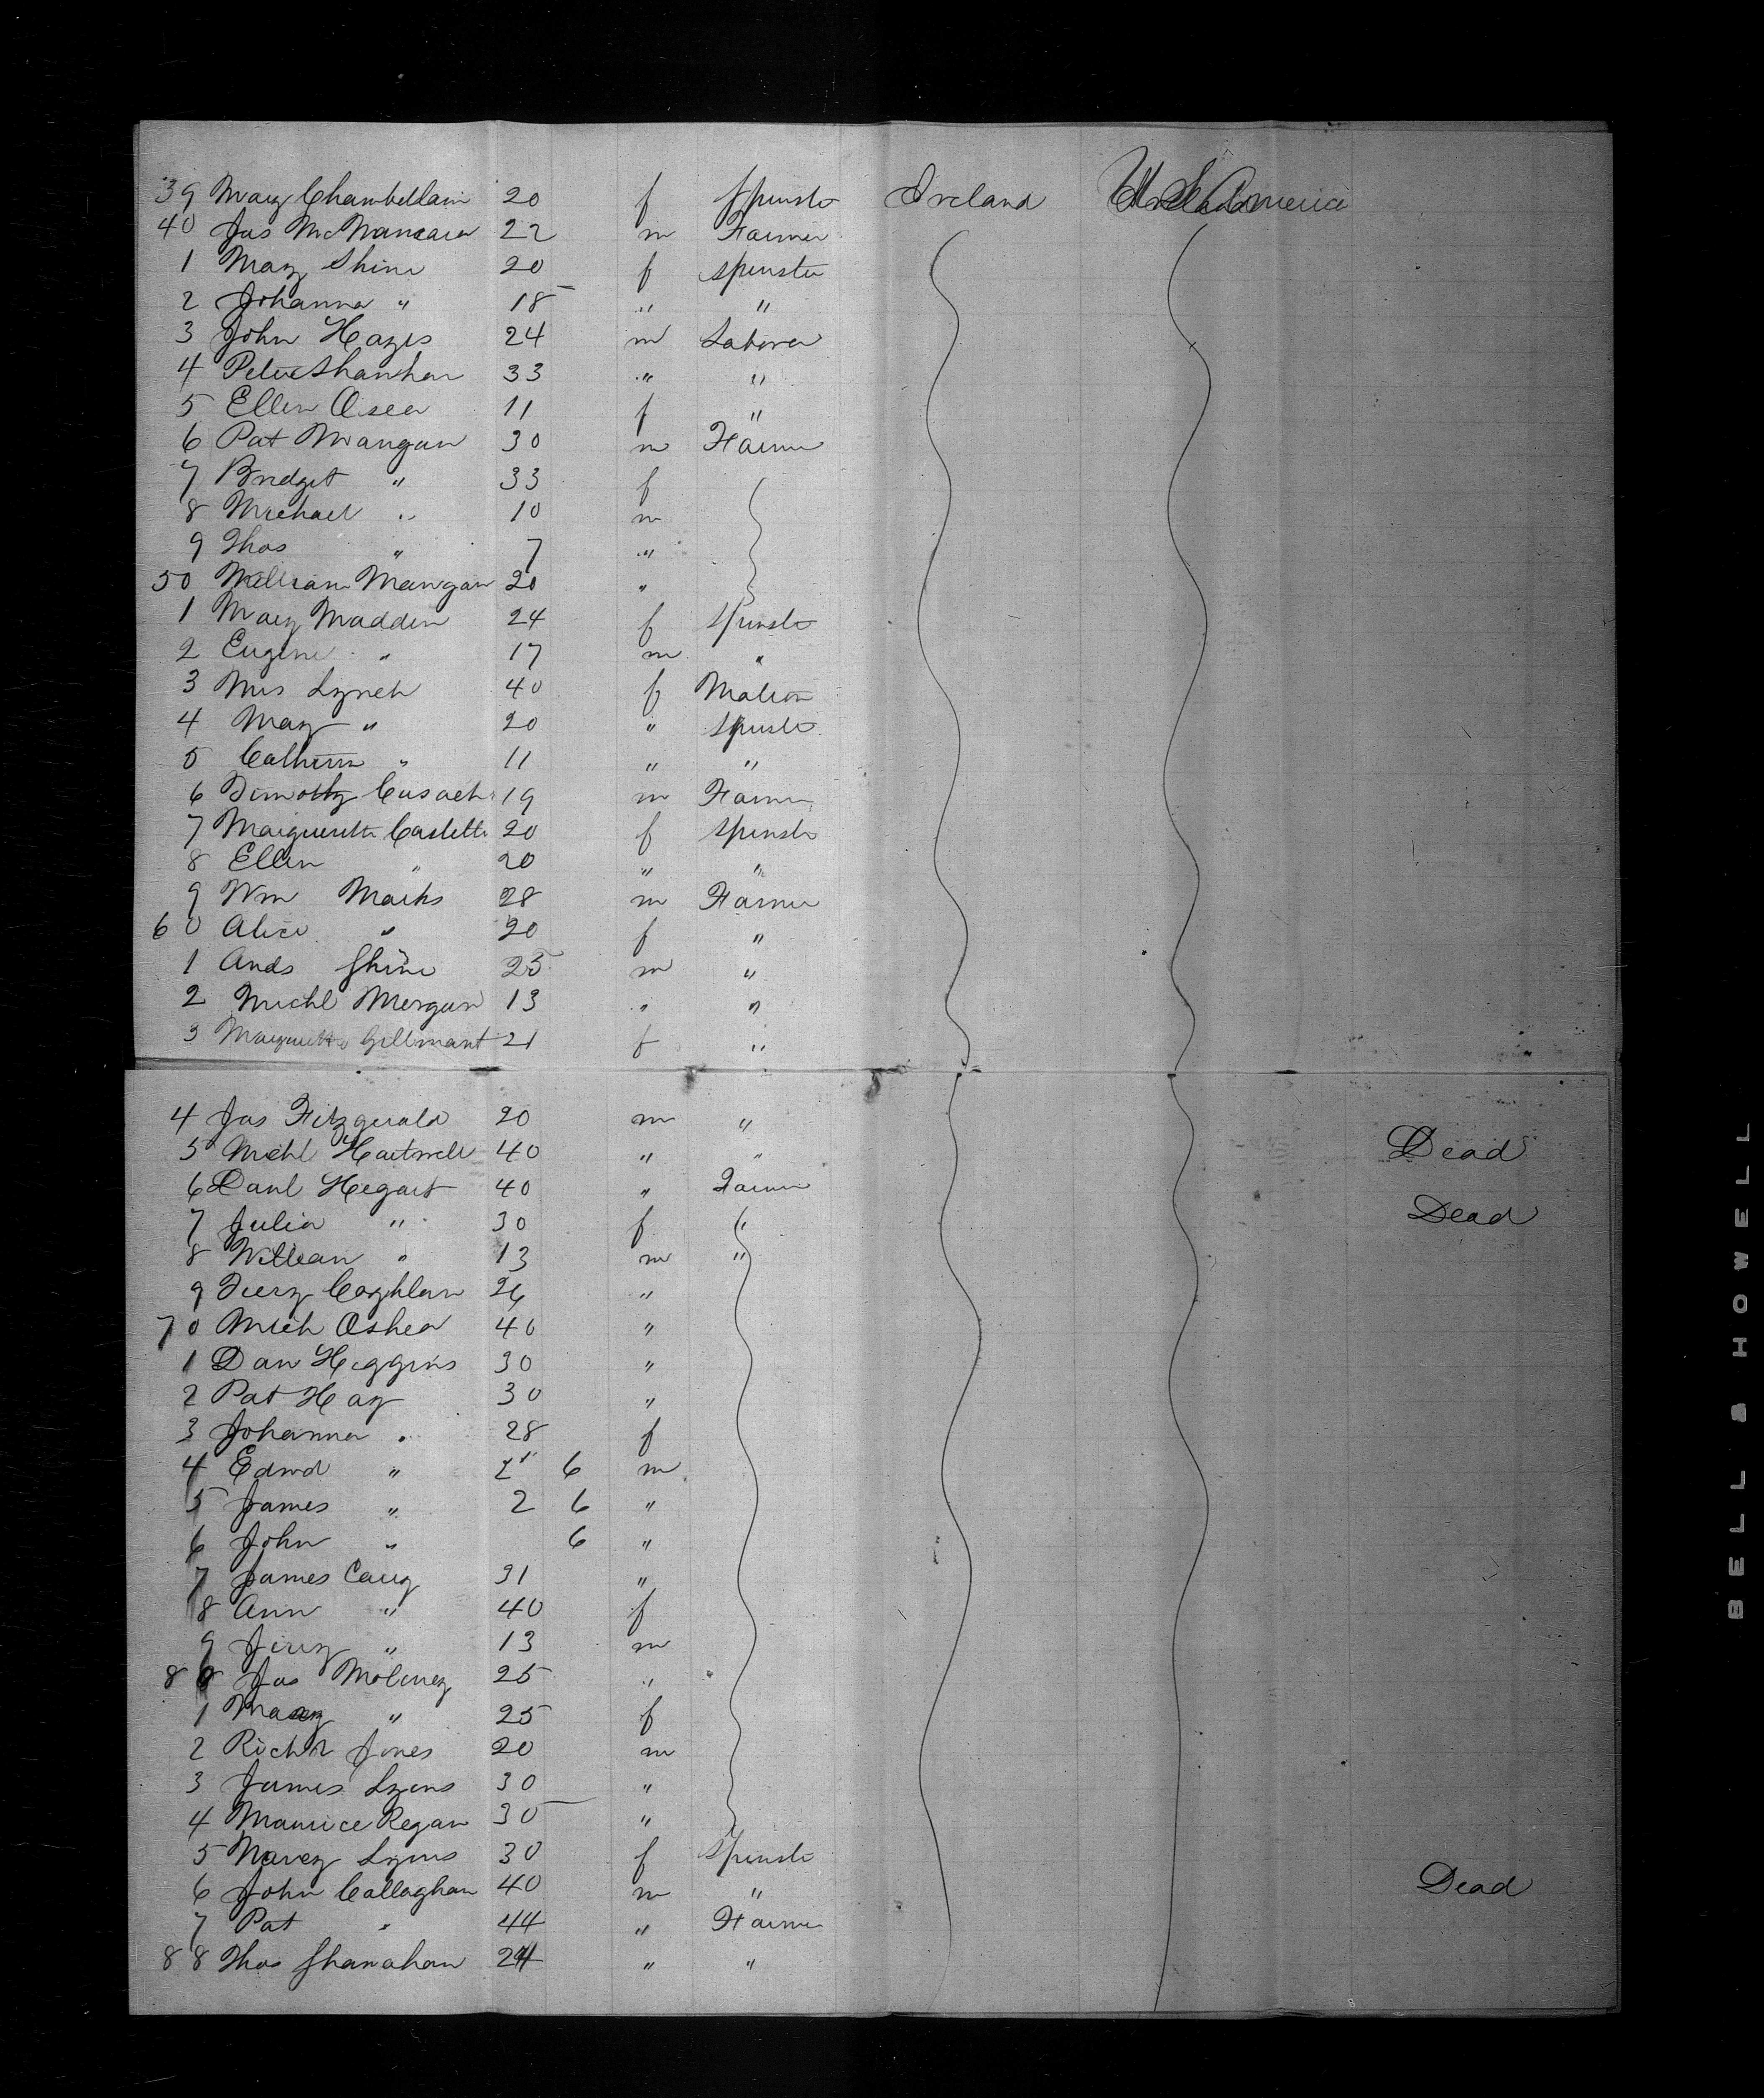 39 Mary Chamberlain 20 f Spinster Ireland U S America
40 Jas McNamara 22 m Farmer
1 Mary Shine 20 f Spinster
2 Johanna " 18 " "
3 John Hayes 24 m Laborer
4 Peter Shanhan 33 " "
5 Ellen Osea 11 f "
6 Pat Mangan 30 m Farmer
7 Bridget " 33 f
8 Michael " 10 m
9 Thos " 7 "
50 William Mangan 20 "
1 Mary Madden 24 f Spinster
2 Eugene " 17 m "
3 Mrs Lynch 40 f Matron
4 Mary " 20 " Spinster
5 Catherine " 11 " "
6 Timothy Cusack 19 m Farmer
7 Marguerette Castelle 20 f Spinster
8 Ellen " 20 " "
9 Wm Marks 28 m Farmer
60 Alice " 20 f "
1 Ands Shine 25 m "
2 Michl Mergan 13 " "
3 Marguerette Gillmant 21 f "
4 Jas Fitzgerald 20 m "
5 Michl Hartwell 40 " " Dead
6 Danl Hegart 40 " Farmer
7 Julia " 30 f " Dead
8 William " 13 m "
9 Coghlan 26 "
70 Mich Oshea 40 "
1 Dan Higgins 30 "
2 Pat Hay 30 "
3 Johanna " 28 f
4 Edwd " 6 m
5 James " 2 6 "
6 John " 6 "
7 James Carry 31 "
8 Ann " 40 f
9 Jerry " 13 m
80 Jas Moloney 25 "
1 Mary " 25 f
2 Richd Jones 20 m
3 James Lyons 30 "
4 Maurice Regan 30 "
5 Mary Lyons 30 f Spinster
6 John Callaghan 40 m " Dead
7 Pat " 44 " Farmer
88 Thos Shanahan 24 " "
BELL & HOWELL